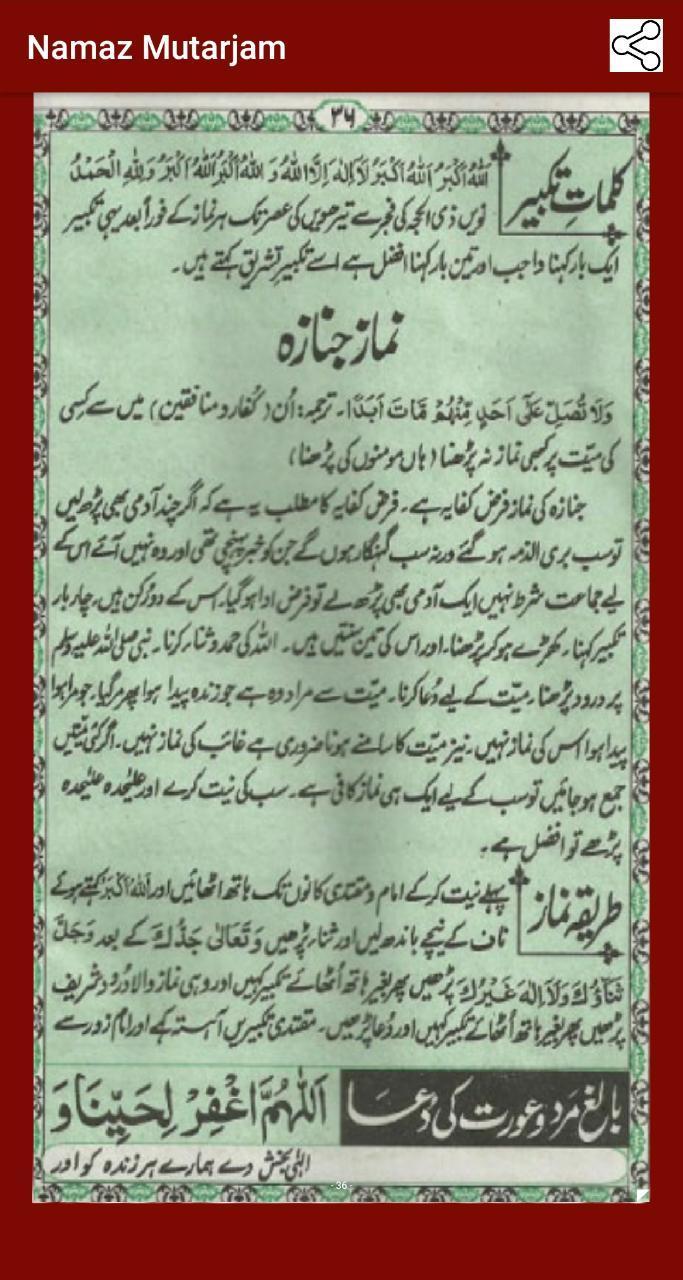 Namaz Mutarjam
۳۶
کلماتِ تکبیر
اَللّٰهُ اَكْبَرُ اَللّٰهُ اَكْبَرُ لَا اِلٰهَ اِلَّا اللّٰهُ وَ اللّٰهُ اَكْبَرُ اَللّٰهُ اَكْبَرُ وَلِلّٰهِ الْحَمْدُ
نویں ذی الحجہ کی فجر سے تیرھویں کی عصر تک ہر نماز کے فوراً بعد یہی تکبیر
ایک بار کہنا واجب اور تین بار کہنا افضل ہے اسے تکبیرِ تشریق کہتے ہیں۔
نمازِ جنازہ
وَلَا تُصَلِّ عَلٰٓى اَحَدٍ مِّنْهُمْ مَّاتَ اَبَدًا۔ ترجمہ: اُن (کُفار و منافقین) میں سے کسی
کی میّت پر کبھی نماز نہ پڑھنا (ہاں مومنوں کی پڑھنا)
جنازہ کی نماز فرض کفایہ ہے۔ فرض کفایہ کا مطلب یہ ہے کہ اگر چند آدمی بھی پڑھ لیں
تو سب بری الذمہ ہو گئے ورنہ سب گنہگار ہوں گے جن کو خبر پہنچی تھی اور وہ نہیں آئے اس کے
لیے جماعت شرط نہیں ایک آدمی بھی پڑھ لے تو فرض ادا ہو گیا۔ اس کے دو رُکن ہیں۔ چار بار
تکبیر کہنا۔ کھڑے ہو کر پڑھنا۔ اور اس کی تین سنتیں ہیں۔ اللہ کی حمد و ثنا کرنا۔ نبی صلی اللہ علیہ وسلم
پر درود پڑھنا۔ میّت کے لیے دُعا کرنا۔ میّت سے مراد وہ ہے جو زندہ پیدا ہوا پھر مر گیا۔ جو مرا ہوا
پیدا ہوا اس کی نماز نہیں۔ نیز میّت کا سامنے ہونا ضروری ہے غائب کی نماز نہیں۔ اگر کئی میّتیں
جمع ہو جائیں تو سب کے لیے ایک ہی نماز کافی ہے۔ سب کی نیت کرے اور علیٰحدہ علیٰحدہ
پڑھے تو افضل ہے۔
طریقہ نماز
پہلے نیت کر کے امام و مقتدی کانوں تک ہاتھ اٹھائیں اور اَللّٰهُ اَكْبَرُ کہتے ہوئے
ناف کے نیچے باندھ لیں اور ثنا پڑھیں وَتَعَالٰى جَدُّكَ کے بعد وَجَلَّ
ثَنَاؤُكَ وَلَا اِلٰهَ غَيْرُكَ پڑھیں پھر بغیر ہاتھ اُٹھائے تکبیر کہیں اور وہی نماز والا درُود شریف
پڑھیں پھر بغیر ہاتھ اُٹھائے تکبیر کہیں اور دُعا پڑھیں۔ مقتدی تکبیریں آہستہ کہے اور امام زور سے
بالغ مَرد و عورت کی دُعا
اَللّٰهُمَّ اغْفِرْ لِحَيِّنَا وَ
الٰہی بخش دے ہمارے ہر زندہ کو اور
- 36 -